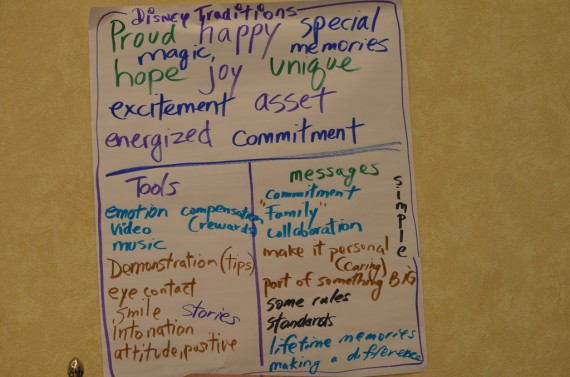 Disney Traditions
Proud happy special
magic, memories
hope joy unique
excitement asset
energized commitment
Tools
emotion compensation
video (rewards)
music
Demonstration (tips)
eye contact
smile stories
intonation
attitude, positive
messages
commitment
"Family"
collaboration
make it personal
(caring)
part of something BIG
some rules
standards
lifetime memories
making a difference
simple